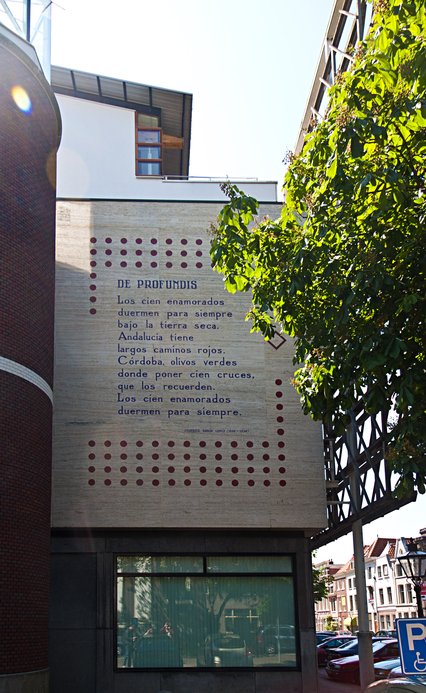 DE PROFUNDIS
Los cien enamorados
duermen para siempre
bajo la tierra seca.
Andalucía tiene
largos caminos rojos.
Córdoba, olivos verdes
donde poner cien cruces,
que los recuerden.
Los cien enamorados
duermen para siempre.
P